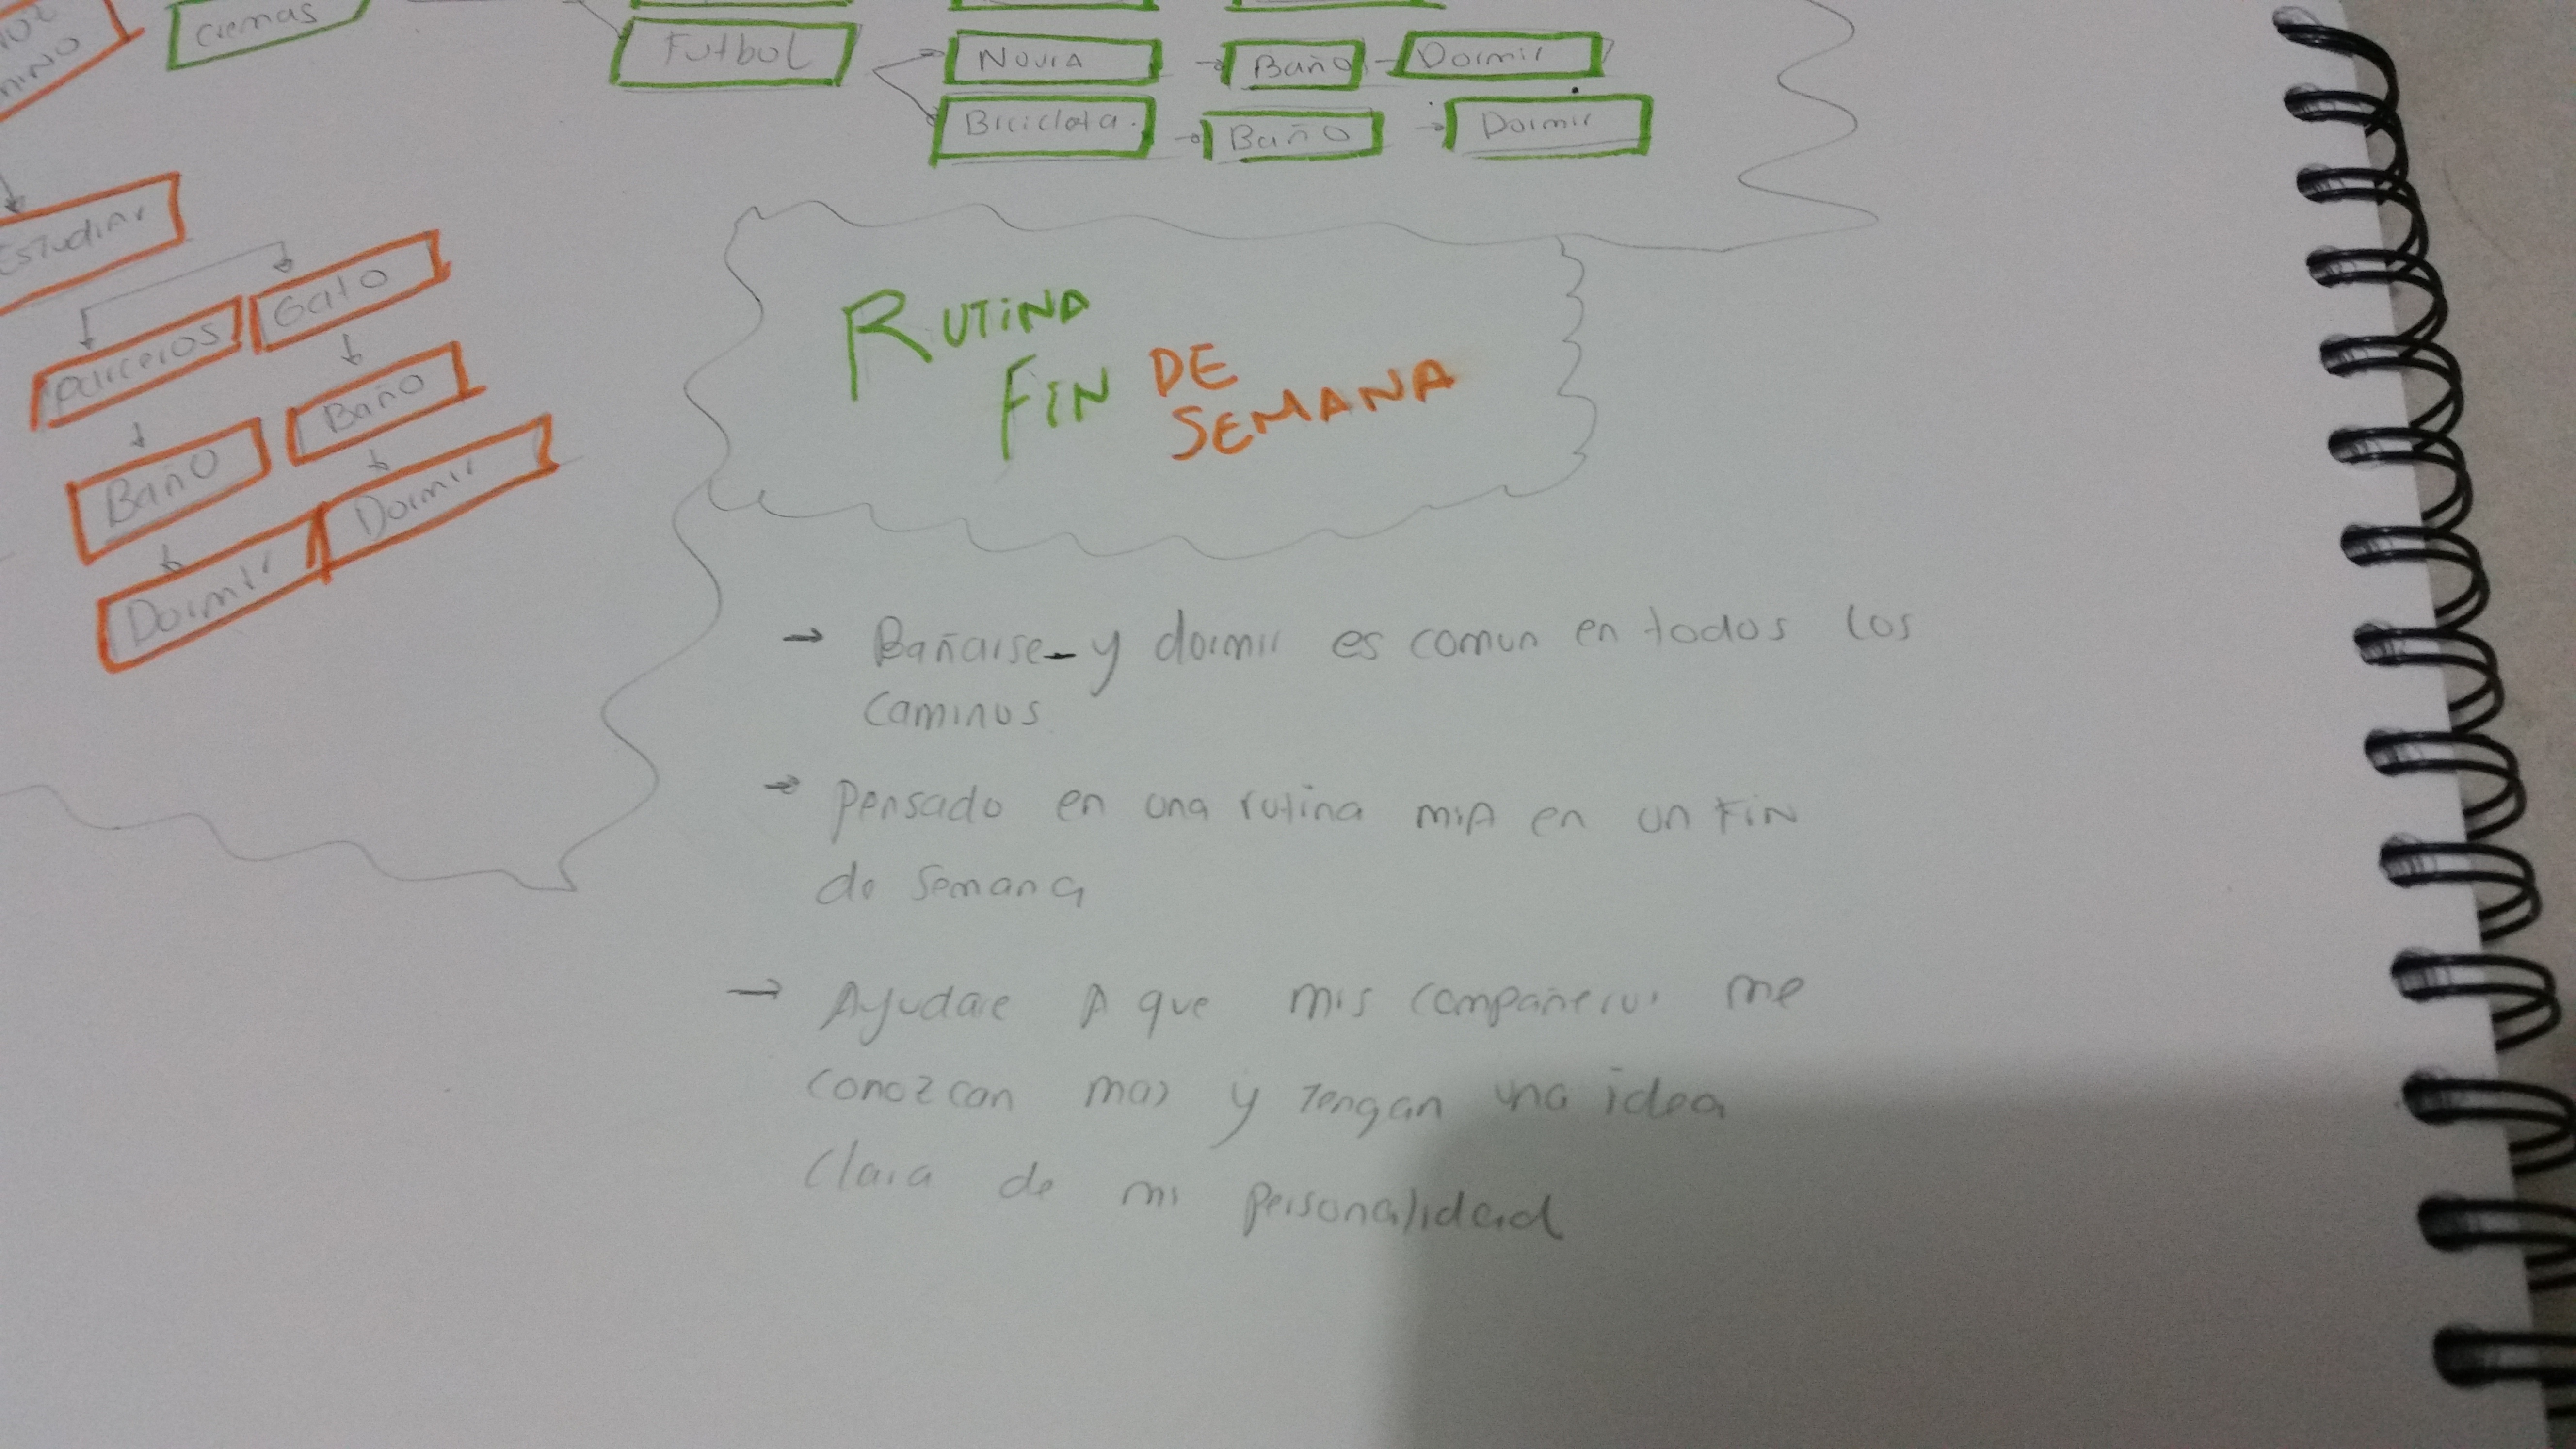 cremas
Futbol
Novia
Baño
Dormir
Bicicleta.
Baño
Dormir
Estudiar
parceros
Gato
Baño
Baño
Dormir
Dormir
RUTiNA
FiN DE
SEMANA
→ Bañarse - y dormir es comun en todos los
caminos
→ pensado en una rutina miA en un FiN
de semana
→ Ayudare A que mis compañeros me
conozcan mas y Tengan una idea
Clara de mi personalidad